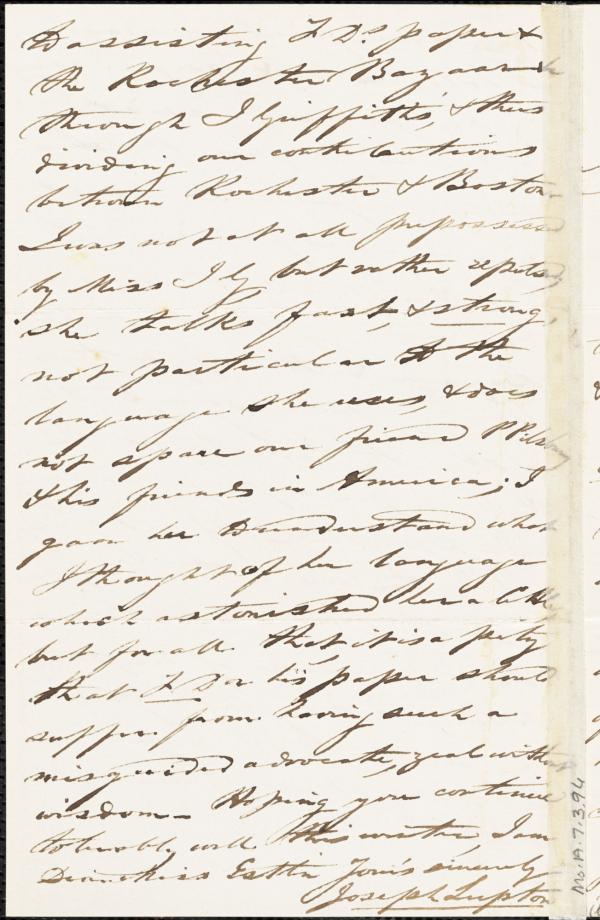 to assisting F Ds. paper &
the Rochester Bazaar &
through J Griffiths, & thus
dividing our contributions
between Rochester & Boston.
I was not at all prepossessed
by Miss J G, but rather repulsed,
she talks fast, & strong,
not particular to the
language she uses, & does
not spare our friend P Pilsbury
& his friends in America; I
gave her to understand what
I thought of her language
which astonished her a little,
but for all that, it is a pity
that F D or his paper should
suffer from having such a
misguided advocate, zeal without
wisdom – Hoping you continue
tolerably well this winter, I am
Dear Miss Estlin Yours sincerely
Joseph Lupton
Ms.A.7.3.94